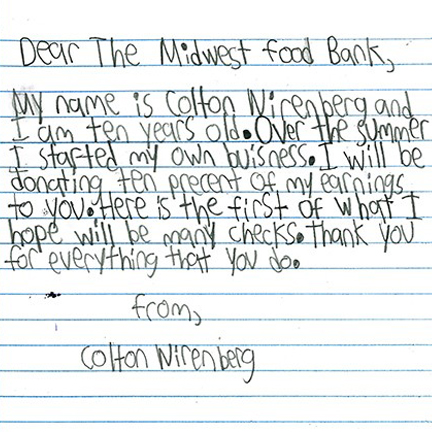 Dear The Midwest food Bank,
My name is Colton Nirenberg and
I am ten years old. Over the summer
I started my own buisness. I will be
donating ten precent of my earnings
to you. Here is the first of what I
hope will be many checks. Thank you
for everything that you do.
from,
Colton Nirenberg